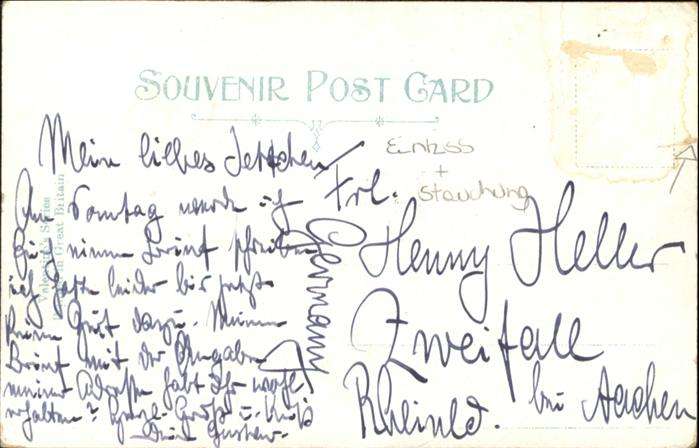 SOUVENIR POST CARD
Einriss
+
Stauchung
Valentine's Series
Great Britain
Mein liebes Jettchen
Am Sonntag werde ich
Euch einen Brief schreiben
ich hatte leider bis jetzt
keine Zeit dazu. Meinen
Brief mit der Angabe
meiner Adresse habt Ihr wohl
erhalten? Herzl. Gruß u. Kuß
Dein Gustav.
Frl.
Henny Heller
Zweifall
Rheinld. bei Aachen
Germany